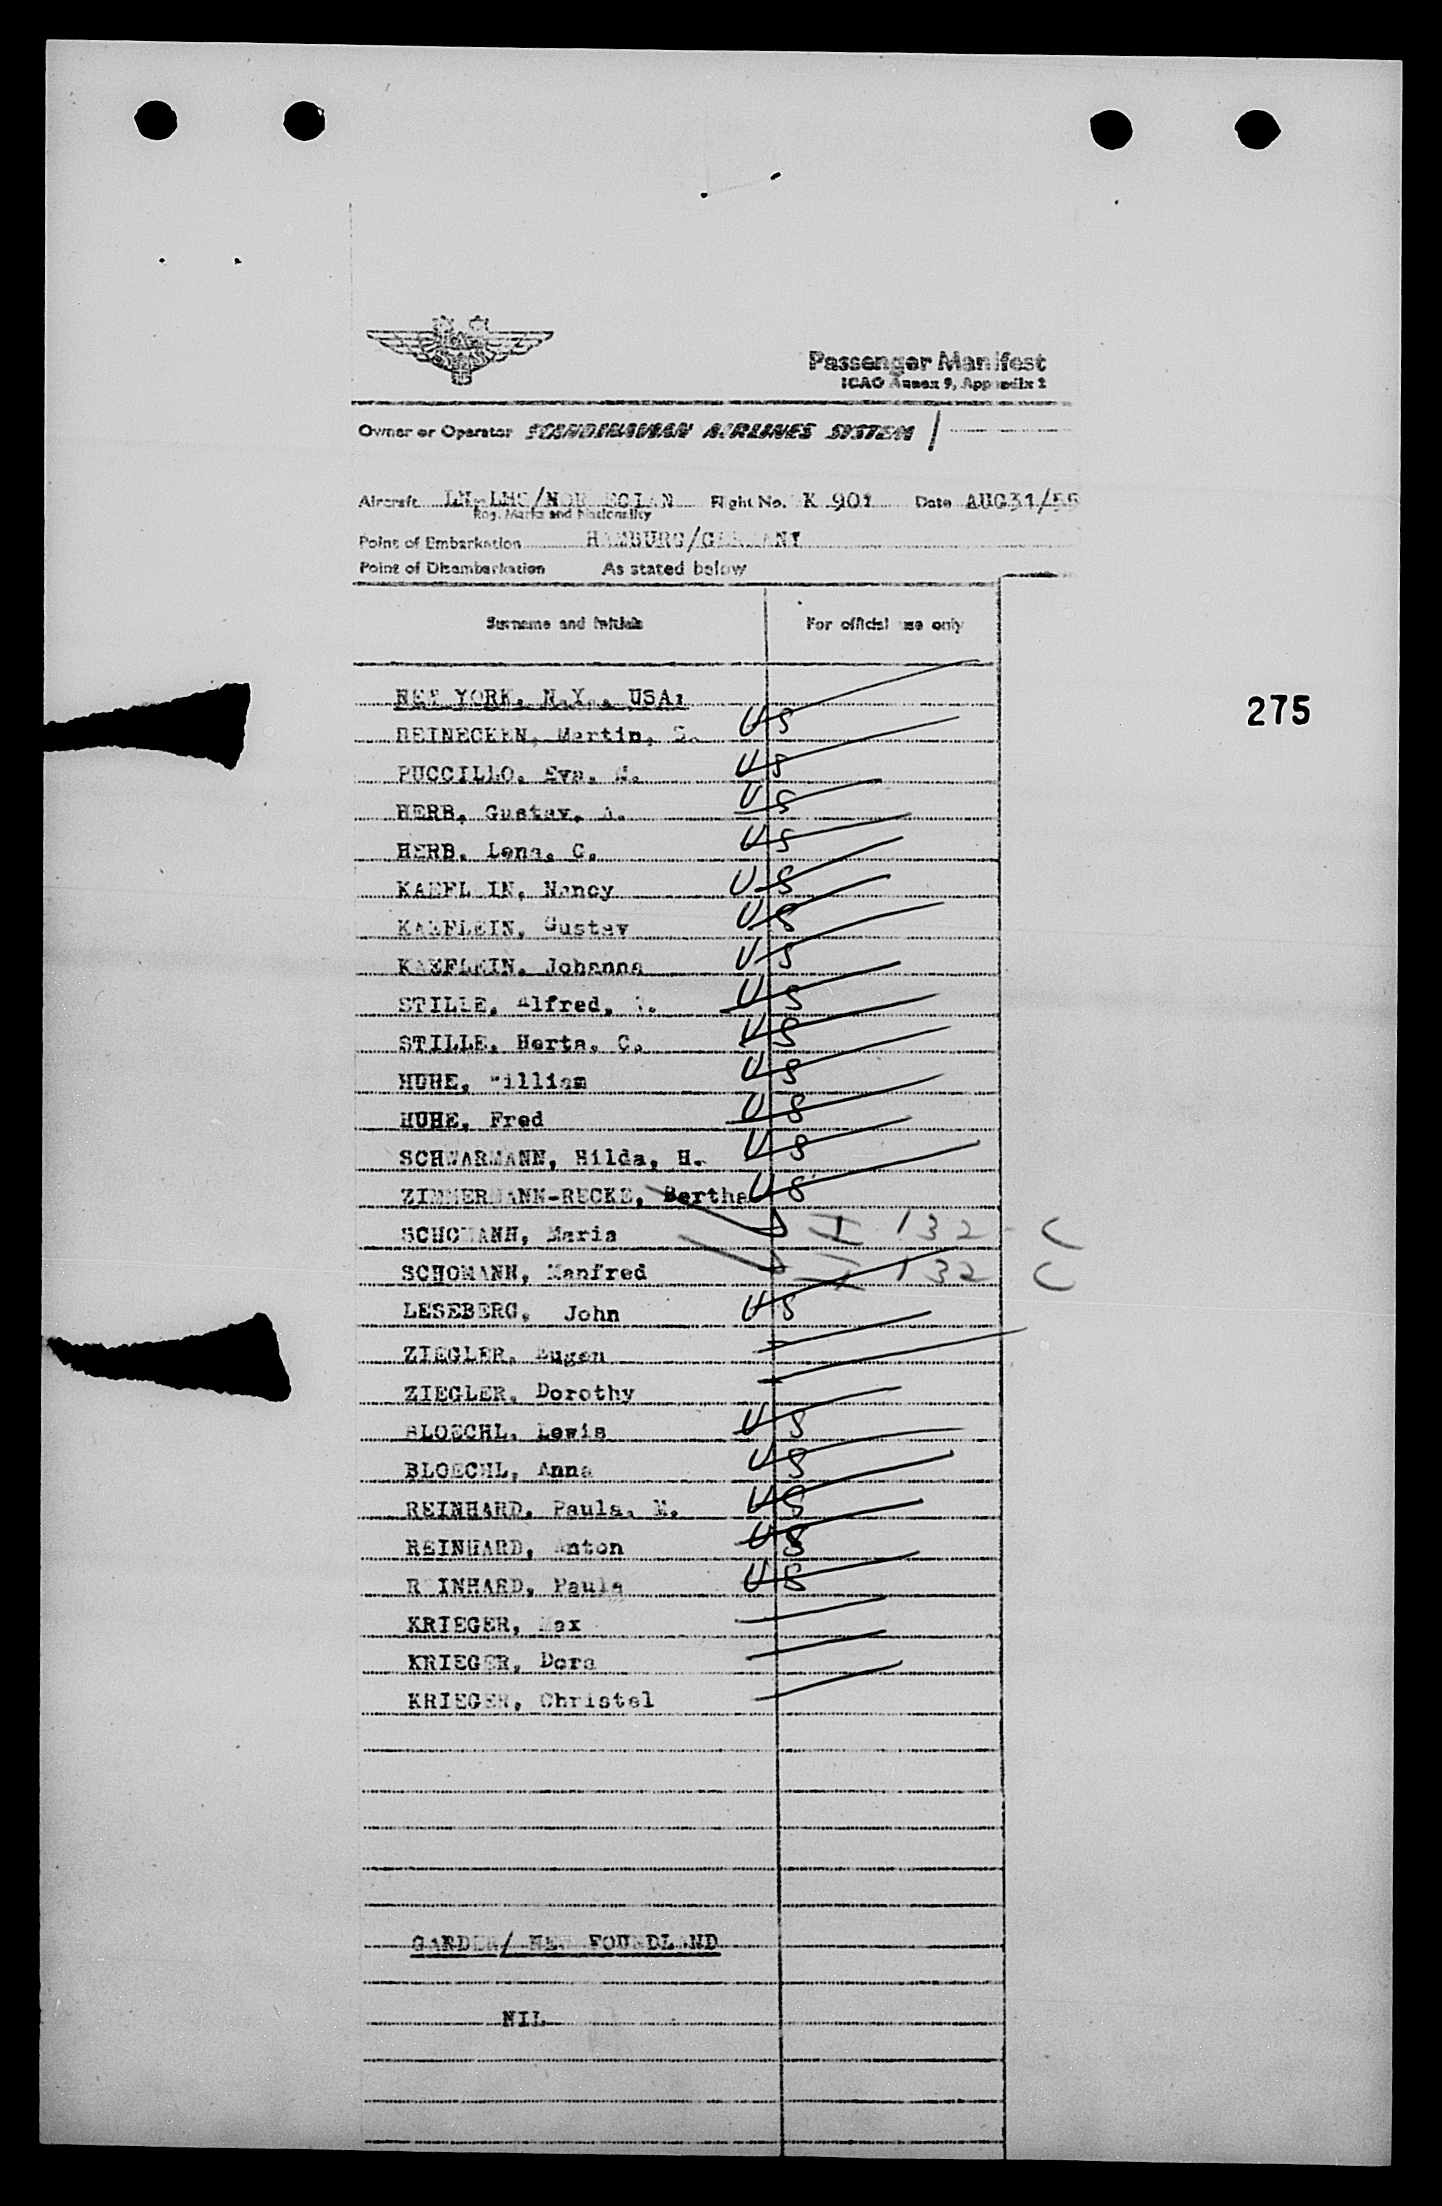 Passenger Manifest
ICAO Annex 9, Appendix 2
Owner or Operator SCANDINAVIAN AIRLINES SYSTEM /
Aircraft /NORWEGIAN Flight No. SK 901 Date AUG31/56
Reg. Marks and Nationality
Point of Embarkation HAMBURG/GERMANY
Point of Disembarkation As stated below
Surname and Initials For official use only
NEW YORK, N.Y., USA:
REINECKEN, Martin, US
PUCCILLO, Eva, US
HERB, Gustav, A. US
HERB, Lena, C. US
KAEFLEIN, Nancy US
KAEFLEIN, Gustav US
KAEFLEIN, Johanna US
STILLE, Alfred, US
STILLE, Herta, C. US
HUHE, William US
HUHE, Fred US
SCHWARMANN, Hilda, H. US
ZIMMERMANN-RECKE, Bertha US
SCHOMANN, Maria I 132 C
SCHOMANN, Manfred I 132 C
LESEBERG, John US
ZIEGLER, Eugen
ZIEGLER, Dorothy
BLOECHL, Lewis US
BLOECHL, Anna US
REINHARD, Paula, M. US
REINHARD, Anton US
REINHARD, Paula US
KRIEGER, Max
KRIEGER, Dora
KRIEGER, Christel
GARDER/ NEW FOUNDLAND
NIL
275